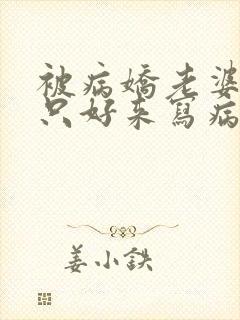 被病嬌老婆
只好来寫病
姜小鉄